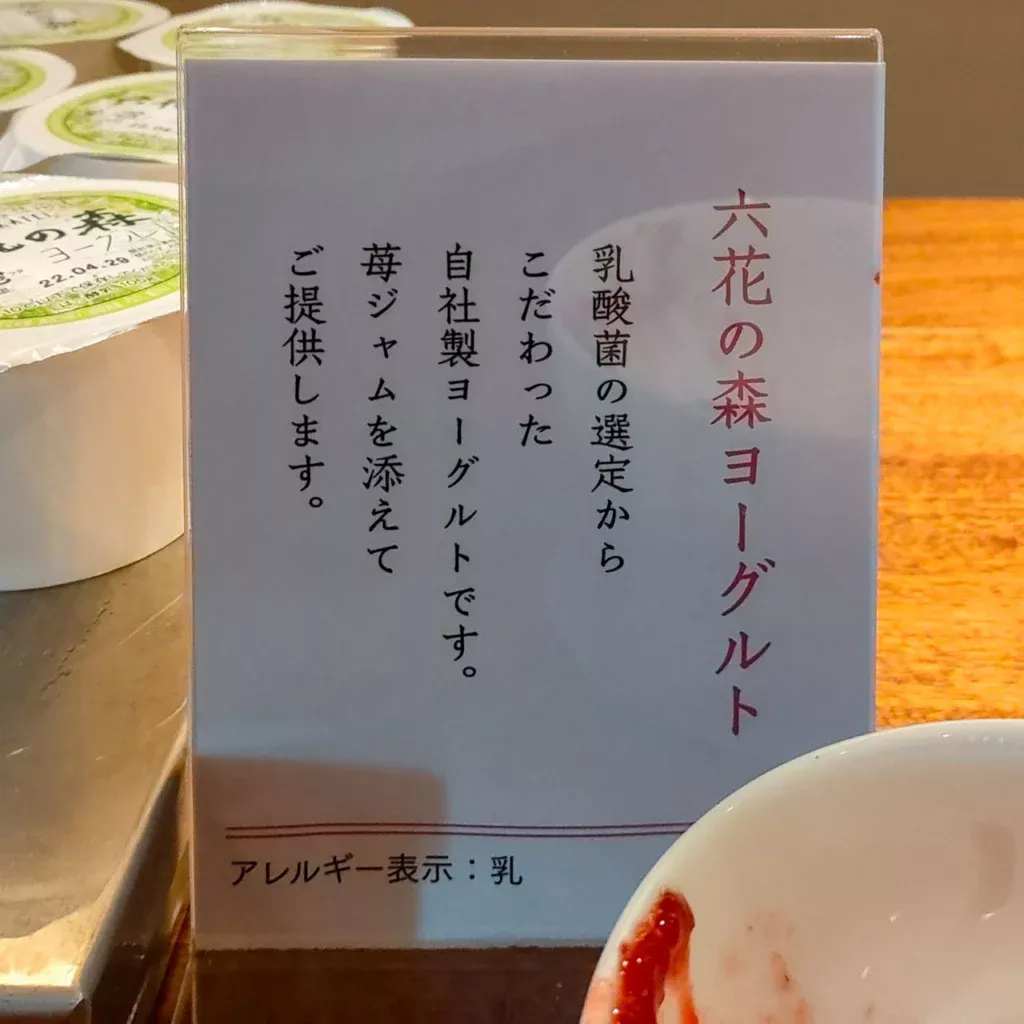 六花の森ヨーグルト
乳酸菌の選定から
こだわった
自社製ヨーグルトです。
苺ジャムを添えて
ご提供します。
アレルギー表示：乳
の森
ヨーグル
22.04.29